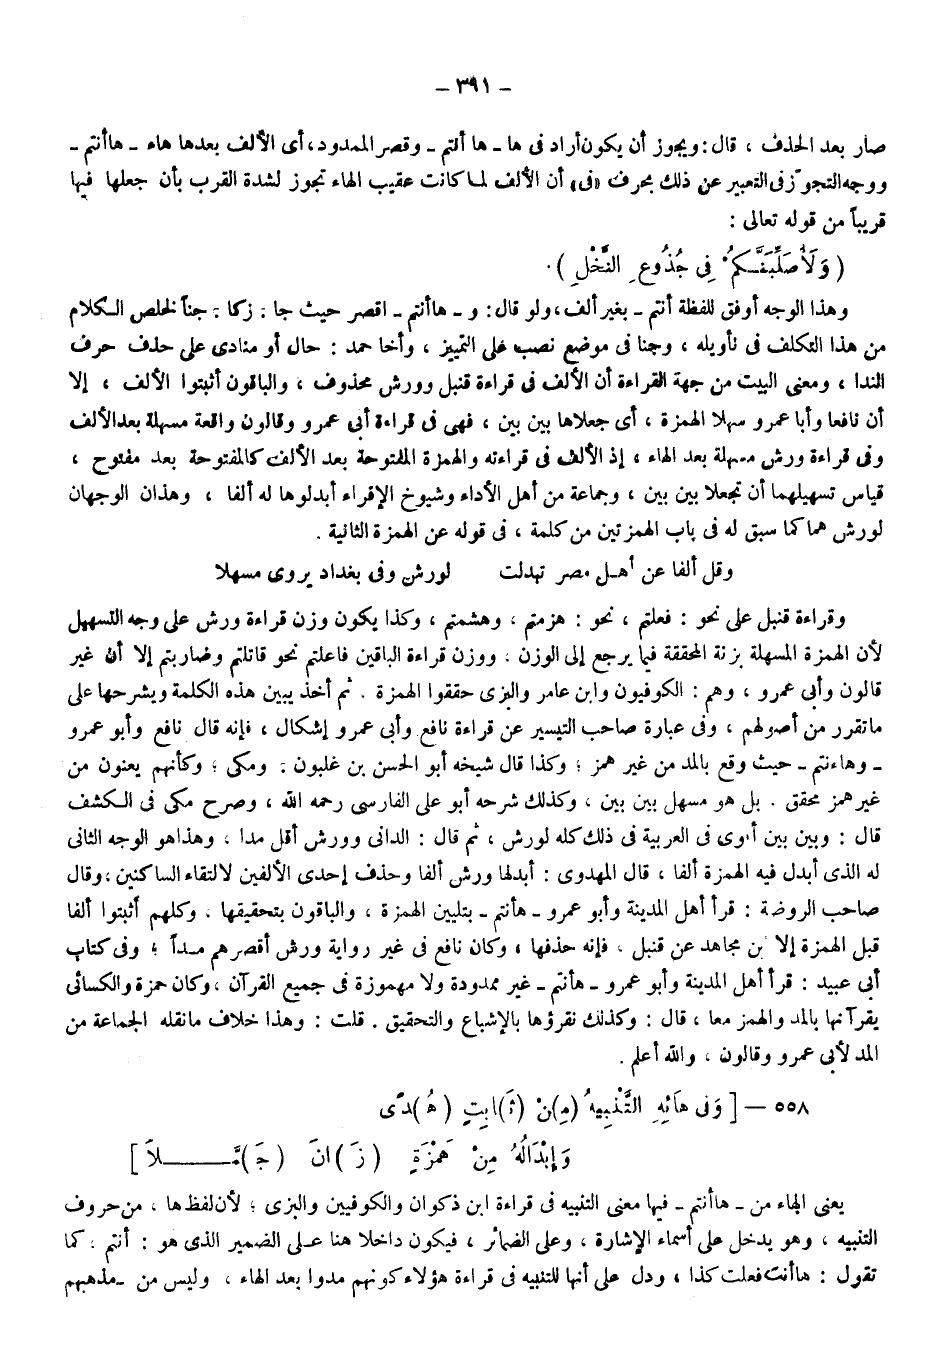 – ٣٩١ –
صار بعد الحذف ، قال : ويجوز أن يكون أراد فى ها ــ ها أنتم ــ وقصر الممدود، أى الألف بعدها هاء ــ هاأنتم ــ
ووجه التجوّز فى التعبير عن ذلك بحرف «فى» أن الألف لما كانت عقيب الهاء تجوز لشدة القرب بأن جعلها فيها
قريباً من قوله تعالى :
( وَلَأُصَلِّبَنَّكُمْ فِى جُذُوعِ النَّخْلِ ) .
وهذا الوجه أوفق للفظة أنتم ــ بغير ألف، ولو قال : و ــ هاأنتم ــ اقصر حيث جا : زكا : جناً لخلص الكلام
من هذا التكلف فى تأويله ، وجنا فى موضع نصب على التمييز ، وأخا حمد : حال أو منادى على حذف حرف
الندا ، ومعنى البيت من جهة القراءة أن الألف فى قراءة قنبل وورش محذوف ، والباقون أثبتوا الألف ، إلا
أن نافعا وأبا عمرو سهلا الهمزة ، أى جعلاها بين بين ، فهى فى قراءة أبى عمرو وقالون واقعة مسهلة بعد الألف
وفى قراءة ورش مسهلة بعد الهاء ، إذ الألف فى قراءته والهمزة المفتوحة بعد الألف كالمفتوحة بعد مفتوح ،
قياس تسهيلهما أن تجعلا بين بين ، وجماعة من أهل الأداء وشيوخ الإقراء أبدلوها له ألفا ، وهذان الوجهان
لورش هما كما سبق له فى باب الهمزتين من كلمة ، فى قوله عن الهمزة الثانية .
وقل ألفا عن أهل مصر تبدلت لورش وفى بغداد يروى مسهلا
وقراءة قنبل على نحو : فعلتم ، نحو : هزمتم ، وهشمتم ، وكذا يكون وزن قراءة ورش على وجه التسهيل
لأن الهمزة المسهلة بزنة المحققة فيما يرجع إلى الوزن . ووزن قراءة الباقين فاعلتم نحو قاتلتم وضاربتم إلا أن غير
قالون وأبى عمرو ، وهم : الكوفيون وابن عامر والبزى حققوا الهمزة . ثم أخذ يبين هذه الكلمة ويشرحها على
ماتقرر من أصولهم ، وفى عبارة صاحب التيسير عن قراءة نافع وأبى عمرو إشكال ، فإنه قال نافع وأبو عمرو
ــ وهاءنتم ــ حيث وقع بالمد من غير همز ؛ وكذا قال شيخه أبو الحسن بن غلبون : ومكى ؛ وكأنهم يعنون من
غير همز محقق . بل هو مسهل بين بين ، وكذلك شرحه أبو على الفارسى رحمه الله ، وصرح مكى فى الكشف
قال : وبين بين أقوى فى العربية فى ذلك كله لورش ، ثم قال : الدانى وورش أقل مدا ، وهذا هو الوجه الثانى
له الذى أبدل فيه الهمزة ألفا ، قال المهدوى : أبدلها ورش ألفا وحذف إحدى الألفين لالتقاء الساكنين ، وقال
صاحب الروضة : قرأ أهل المدينة وأبو عمرو ــ هأنتم ــ بتليين الهمزة ، والباقون بتحقيقها . وكلهم أثبتوا ألفا
قبل الهمزة إلا بن مجاهد عن قنبل . فإنه حذفها ، وكان نافع فى غير رواية ورش أقصرهم مداً ؛ وفى كتاب
أبى عبيد : قرأ أهل المدينة وأبو عمرو ــ هأنتم ــ غير ممدودة ولا مهموزة فى جميع القرآن ، وكان حمزة والكسائى
يقرآنها بالمد والهمز معا ، قال : وكذلك نقرؤها بالإشباع والتحقيق . قلت : وهذا خلاف مانقله الجماعة من
المد لأبى عمرو وقالون ، والله أعلم .
٥٥٨ – [ وَفى هَائِهِ التَّنْبِيهُ (مِ)نْ (ثَ)ابِتٍ (هُ)دًى
وَإِبْدَالُهُ مِنْ هَمْزَةٍ (زَ)انَ (جَ)مَّــلاَ ]
يعنى الهاء من ــ هاأنتم ــ فيها معنى التنبيه فى قراءة ابن ذكوان والكوفيين والبزى ؛ لأن لفظها ، من حروف
التنبيه ، وهو يدخل على أسماء الإشارة ، وعلى الضمائر ، فيكون داخلا هنا على الضمير الذى هو : أنتم . كما
تقول : هاأنت فعلت كذا ، ودل على أنها للتنبيه فى قراءة هؤلاء كونهم مدوا بعد الهاء ، وليس من ــ مذهبهم